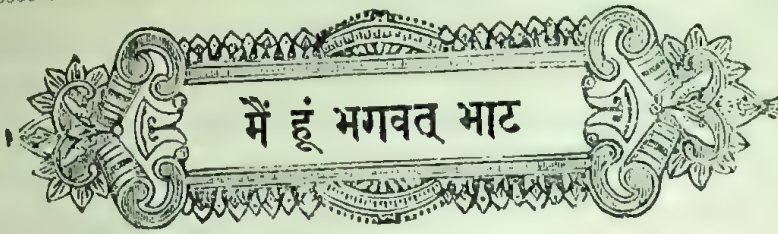 मैं हूं भगवत् भाट